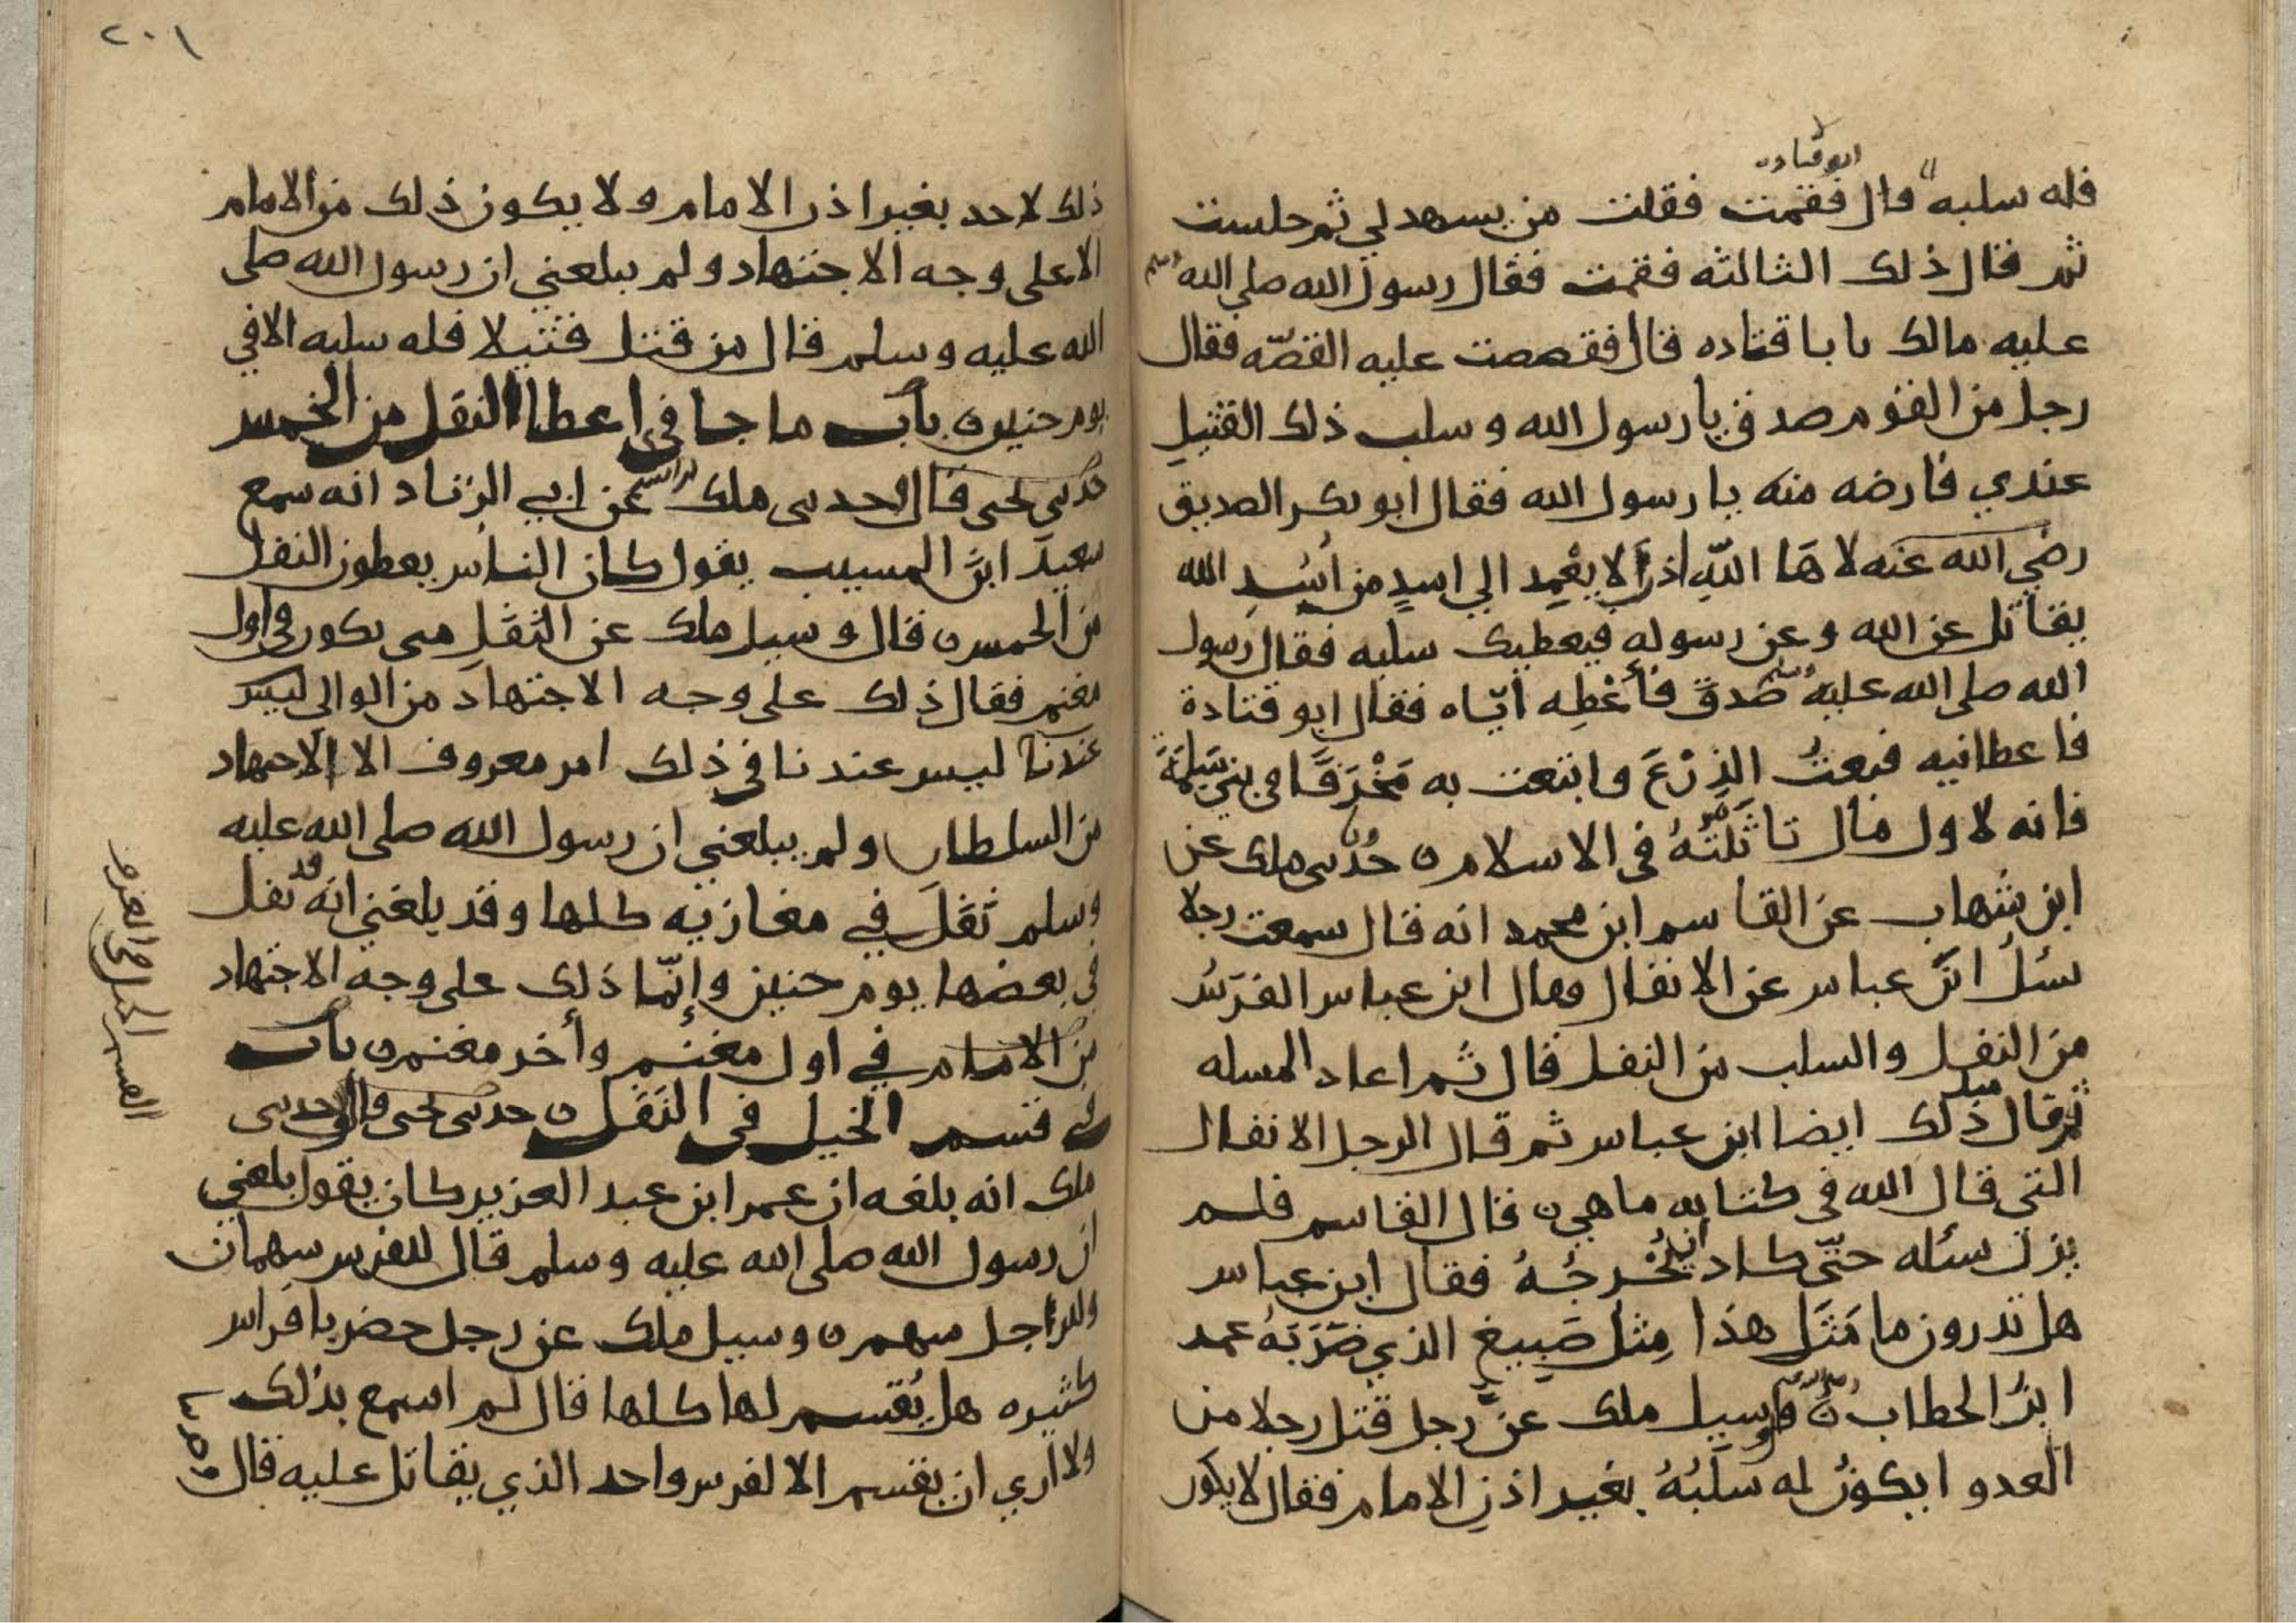 ابو قتادة
فله سلبه قال فقمت فقلت من يسهد لي ثم جلست
ثم قال ذلك الثالثه فقمت فقال رسول الله صلي الله
عليه مالك يا با قتاده قال فقصصت عليه القصّه فقال
رجل من القوم صدق يا رسول الله وسلب ذلك القتيل
عندي فارضه منه يا رسول الله فقال ابو بكر الصديق
رضي الله عنه لا هَا اللّهِ اذًا لا يعْمِد الي اسدٍ من أُسُدِ الله
يقاتل عن الله وعن رسوله فيعطيك سلبه فقال رسول
الله صلي الله عليه وسلم صَدقَ فأعْطِه ايّاه فقال ابو قتادة
فاعطانيه فبعتُ الدِرْعَ وابتعت به مَخْرَفًا في بني سَلِمَةَ
فانه لاول مال تاثّلتُهُ في الاسلام ن حدّىى ملك عن
ابن شهاب عن القاسم ابن محمد انه قال سمعت رجلا
سئلُ ابنَ عباس عن الانفال وقال ابن عباس الفرَسُ
من النفل والسلب من النفل قال ثم اعاد المسله
ثم قال ذلك ايضا ابن عباس ثم قال الرجل الانفال
التي قال الله في كتابه ما هي ن قال القاسم فلم
يزل سئله حتّى كاد ان يُحْرجُهُ فقال ابن عباس
هل تدرون ما مَثَل هذا مِثل صَبيغ الذي ضَرَبَهُ عمر
ابنُ الخطاب ن قال وسيل ملك عن رجل قتل رجلا من
العدو ايكونُ له سَلَبُهُ بغير اذنِ الامام فقال لا يكون
٢٠١
ذلك لاحد بغير اذن الامام ولا يكون ذلك من الامام
الا على وجه الاجتهاد ولم يبلغني ان رسول الله صلى
الله عليه وسلم قال من قتل قتيلا فله سلبه الا في
يوم حنين ن باب ما جا في اعطا النفل من الخمس
حدىى يحيى قال حدىى ملك عن ابي الزناد انه سمع
سعيدَ ابنَ المسيب يقول كان الناس يعطون النفل
من الخمس ن قال وسيل ملك عن النّفَلِ هى يكون في اول
مغنم فقال ذلك على وجه الاجتهاد من الوالي ليس
عندنا ليس عندنا في ذلك امر معروف الا الاجتهاد
من السلطان ولم يبلغني ان رسول الله صلى الله عليه
وسلم نَفّلَ في مغازيه كلها وقد بلغني انه قد نفل
في بعضها يوم حنين وإنّما ذلك على وجه الاجتهاد
من الامام في اول مغنم وأخر مغنم ن باب
في قسم الخيل في النَفَل ن حدىى يحيى قال حدىى
ملك انه بلغه ان عمر ابن عبد العزيز كان يقول بلغني
ان رسول الله صلى الله عليه وسلم قال للفرس سهمان
وللراجل سهم ن وسيل ملك عن رجل حضر بافراس
كثيره هل يُقسم لها كلها قال لم اسمع بذلك
ولا اري ان يقسم الا لفرس واحد الذي يقاتل عليه قال
القسم للخيل في الغزو